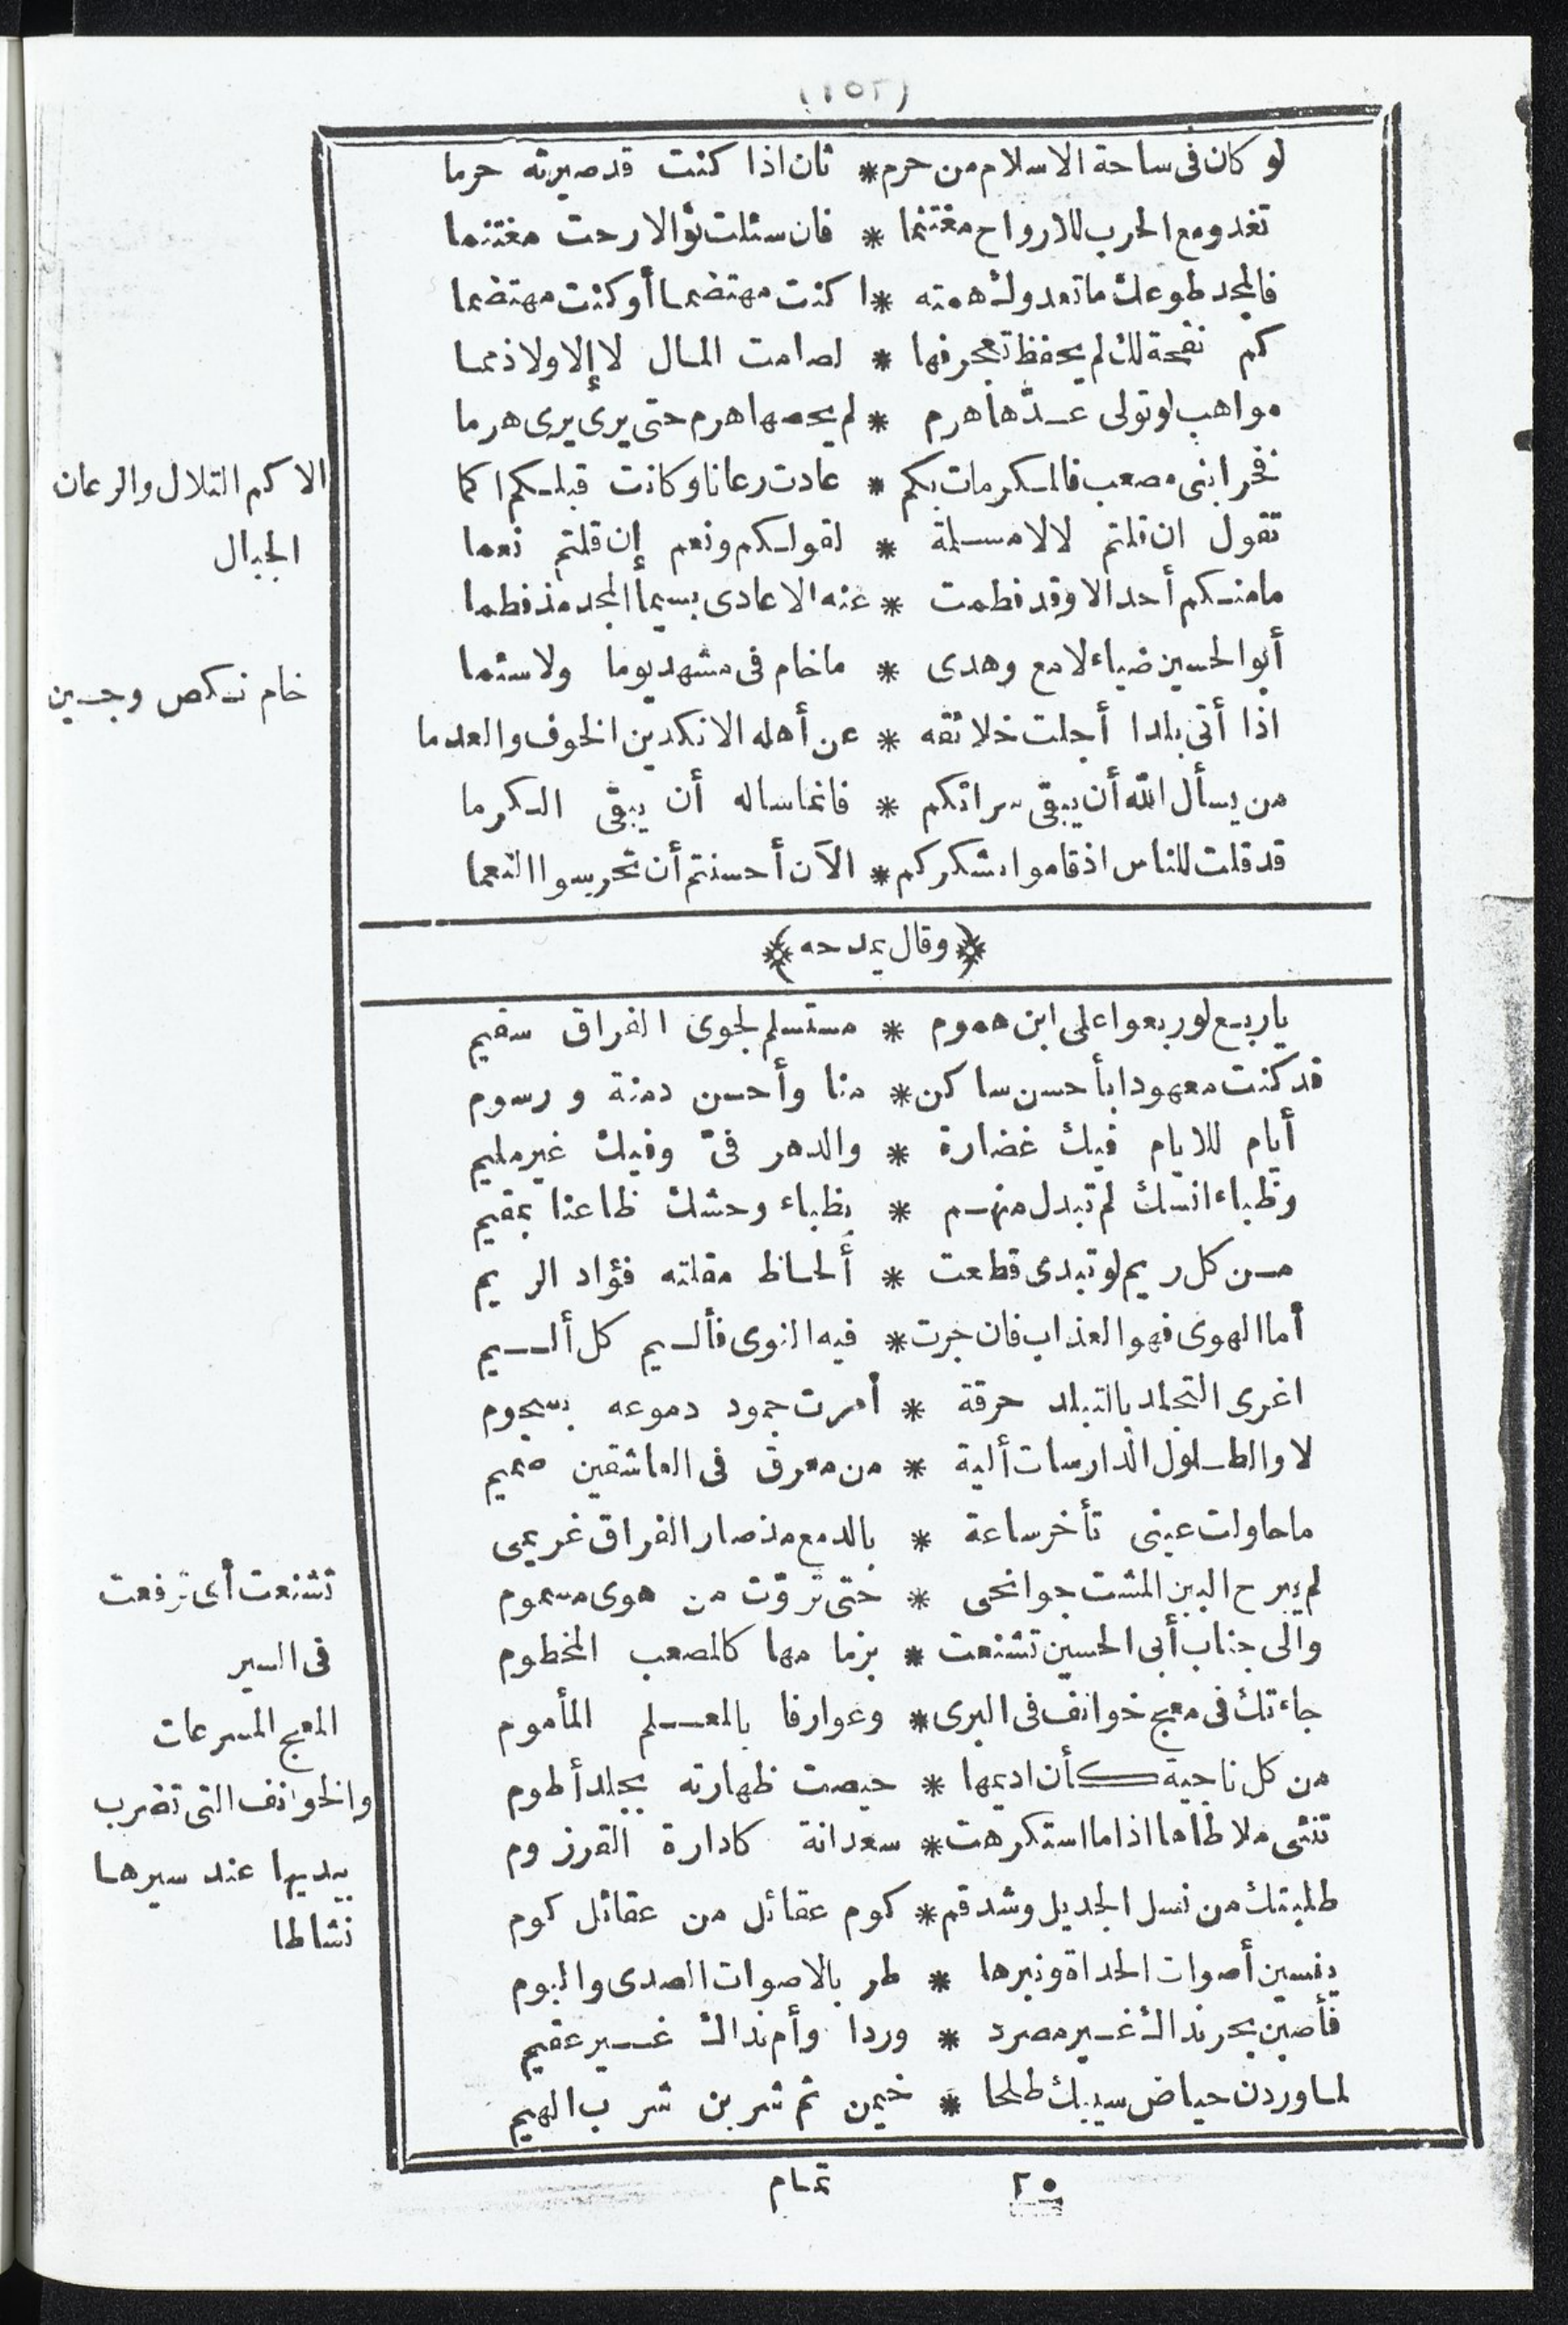 (١٥٢)
لو كان فى ساحة الاسلام من حرم * ثان اذا كنت قد صيرته حرما
تغدو مع الحرب للارواح مغتنما * فان سئلت نوالا رحت مغتنما
فالمجد طوعك ما تعدوك همته * اكنت مهتضما أو كنت مهتضما
كم نفحة لك لم يحفظ تعجرفها * لصامت المال لا إلا ولا ذمما
مواهب لو تولى عدّها هرم * لم يحصها هرم حتى يرى يرى هرما
فخرا بنى مصعب فالمكرمات بكم * عادت رعانا وكانت قبلكم اكما
تقول ان قلتم لا لا مسلمة * لقولكم ونعم إن قلتم نعما
مامنكم أحد الا وقد فطمت * عنه الاعادى بسيما المجد مذ فطما
أبو الحسين ضياء لامع وهدى * ماخام فى مشهد يوما ولا سئما
اذا أتى بلدا أجلت خلائقه * عن أهله الانكدين الخوف والعدما
من يسأل الله أن يبقى سراتكم * فانما ساله أن يبقى الكرما
قد قلت للناس اذ قاموا بشكركم * الآن أحسنتم أن تحرسوا النعما
الاكم التلال والرعان
الجبال
خام نكص وجبن
﴿وقال يمدحه﴾
ياربع لو ربعوا على ابن هموم * مستسلم لجوى الفراق سقيم
قد كنت معهودا بأحسن ساكن * منا وأحسن دمنة ورسوم
أيام للايام فيك غضارة * والدهر فىّ وفيك غير مليم
وظباء انسك لم تبدل منهم * بظباء وحشك ظاعنا بمقيم
من كل ريم لو تبدى قطعت * ألحاظ مقلته فؤاد الريم
أما الهوى فهو العذاب فان جرت * فيه النوى فأليم كل أليم
اغرى التجلد بالتبلد حرقة * أمرت جمود دموعه بسجوم
لا والطلول الدارسات ألية * من معرق فى العاشقين صميم
ماحاولت عينى تأخر ساعة * بالدمع مذ صار الفراق غريمى
لم يبرح البين المشت جوانحى * حتى تروّت من هوى مسموم
والى جناب أبى الحسين تشنعت * بزمامها كالمصعب المخطوم
جاءتك فى معج خوانف فى البرى * وعوارفا بالمعلم المأموم
من كل ناجية كأن اديمها * حيصت ظهارته بجلد أطوم
تنئى ملاطاها اذا ما استكرهت * سعدانة كادارة الفرزوم
طلبتك من نسل الجديل وشدقم * كوم عقائل من عقائل كوم
ينسين أصوات الحداة ونبرها * طر بالاصوات الصدى والبوم
فأصبن بحر نداك غير مصرد * وردا وأم نداك غير عقيم
لما وردن حياض سيبك طلحا * خيمن ثم شربن شرب الهيم
تشنعت أى ترفعت
فى السير
المعج المسرعات
والخوانف التى تضرب
بيديها عند سيرها
نشاطا
٢٠
تمام